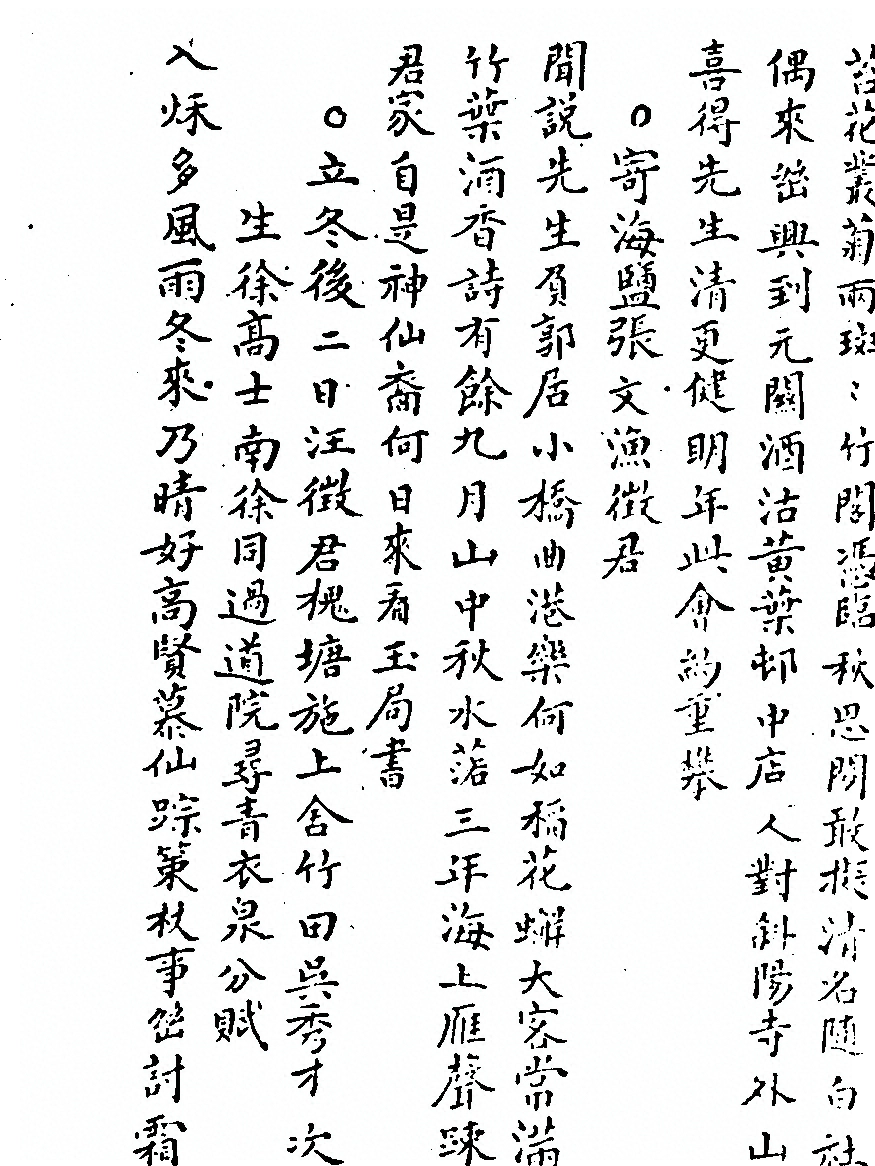 苔花叢菊雨斑〻竹閣憑臨秋思閒敢擬清名随白社
偶來幽興到元關酒沽黃葉邨中店人對斜陽寺外山
喜得先生清更健明年此會約重攀
○寄海鹽張文漁徴君
聞說先生負郭居小橋曲港樂何如稻花蠏大客常滿
竹葉酒香詩有餘九月山中秋水落三年海上雁聲踈
君家自是神仙裔何日來看玉局書
○立冬後二日汪徴君槐塘施上舍竹田吳秀才次
生徐髙士南徐同過道院尋青衣泉分賦
入烁多風雨冬來乃晴好高賢慕仙踪策杖事幽討霜